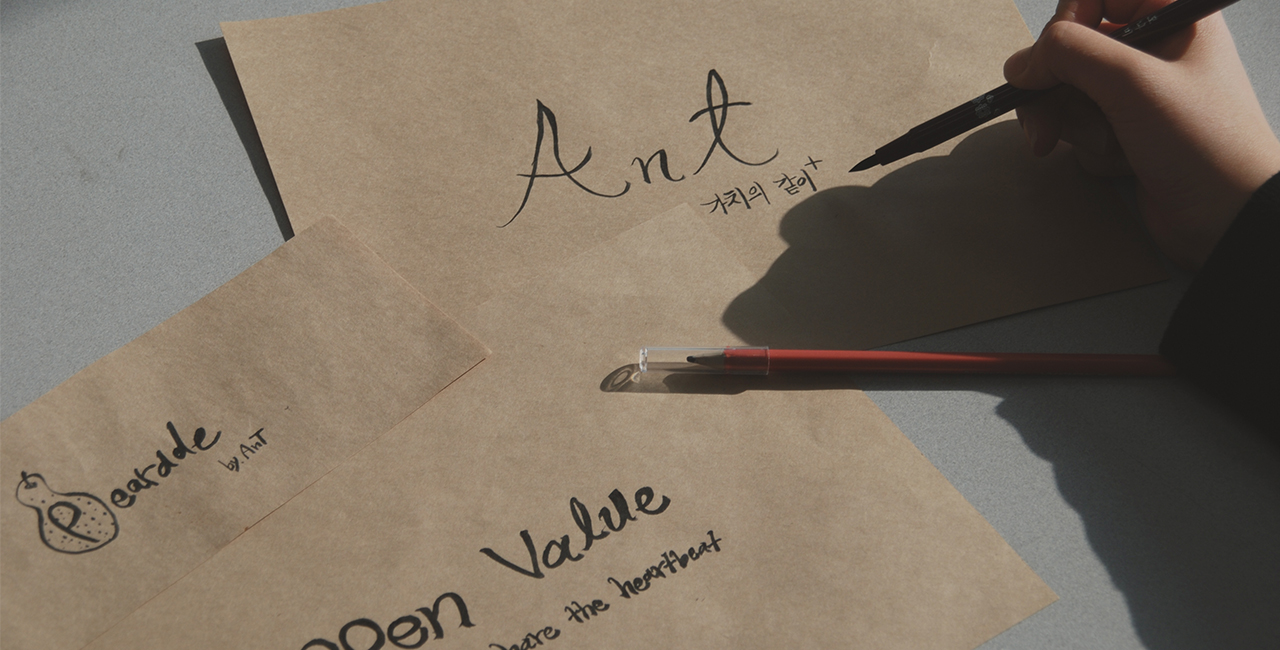 Ant
가치의 같이+
Pearade
by. AnT
Value
the heartbeat